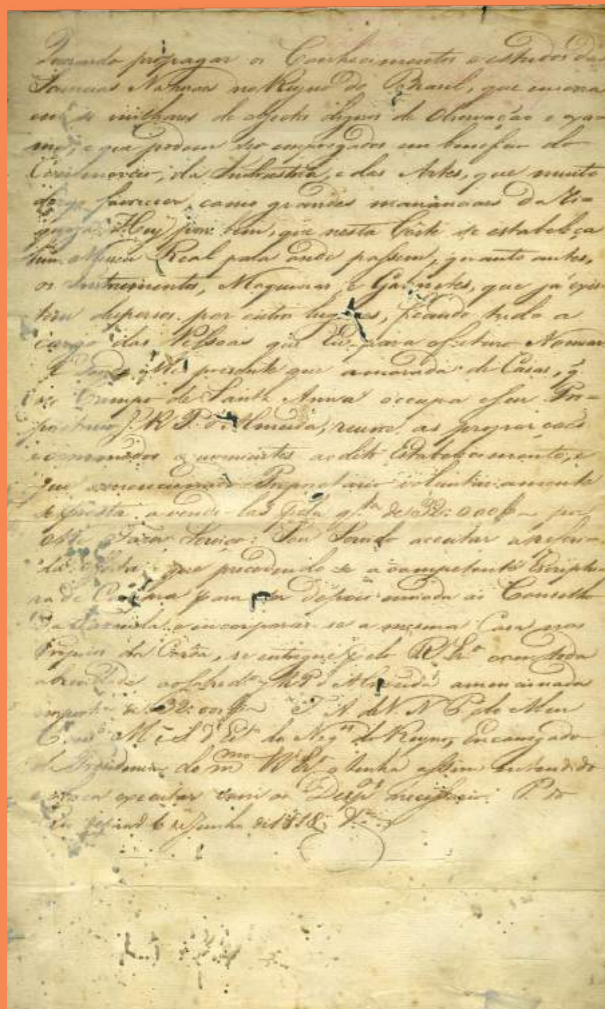 Querendo propagar os Conhecimentos e estudos das
Sciencias Naturaes no Reyno do Brasil, que encerra
em si milhares de objectos dignos de observação e exa-
me, e que podem ser empregados em beneficio do
Commercio, da Industria, e das Artes, que muito
dezejo favorecer, como grandes mananciaes da ri-
queza: Hey por bem, que nesta Corte se estabeleça
hum Museu Real para onde passem, quanto antes,
os Instrumentos, Maquinas, e Gabinetes, que já exis-
tem dispersos por outros lugares, ficando tudo a
cargo das Pessoas que Eu para o futuro Nomear
presente que a morada de Casas, q
no Campo de Santa Anna occupa o seu Pro-
prietario J. R. P. d'Almeida, reune as proporções
e commodos convenientes ao dito Estabelecimento, e
que o mencionado Proprietario voluntariamente
se presta a vende-las pela q.ta de 32:000 por
Me Fazer Serviço: Sou Servido acceitar a referi-
da offerta, que procedendo-se a competente Escriptu-
ra de Compra para ser depois enviada ao Conselho
da Fazenda, e incorporar-se a mesma Casa nos
Proprios da Corôa, se entregue pelo R. Er.o com toda
a brevidade ao sobred.o J. R. P. Almeida a mencionada
import.a de 32:000 T. A. de V. N. P. do Meu
Cons.o M. E. d'Est.o do Neg.os do Reyno, Encarregado
da Presidencia do m.mo R. Er.o o tenha assim entendido
e faça executar com os Desp.os necessarios. P.o do
6 de Junho de 1818.